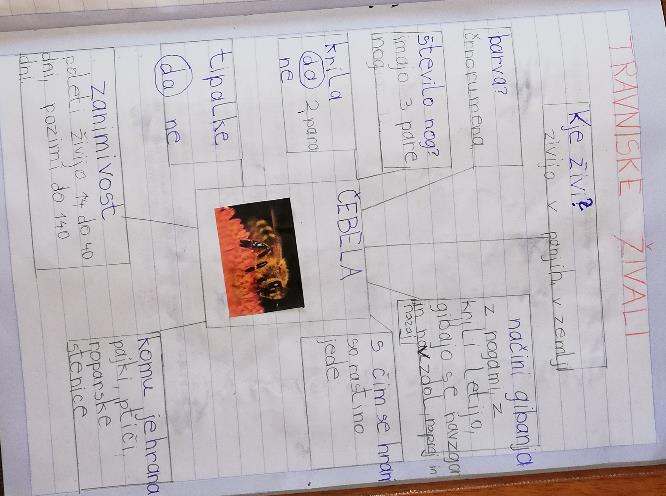 TRAVNIŠKE ŽIVALI
Kje živi?
živijo v panjih, v zemlji
barva?
črnorumena
število nog?
imajo 3 pare
nog
krila
do 2 para
ne
tipalke
do ne
zanimivost
poleti živijo 14 do 40
dni, pozimi do 140
dni.
ČEBELA
načini gibanja
z nogami, z
krili letijo,
gibajo se navzgor
in navzdol naprej in
nazaj
s čim se hrani
so rastlino
jede
komu je hrana
pajki, ptiči,
roparske
stenice